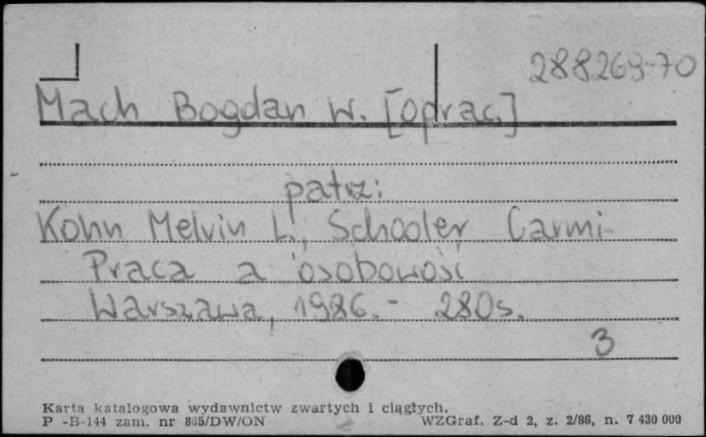 288269-70
Mach Bogdan W. [oprac.]
patrz:
Kohn Melvin L., Schooler Carmi
Praca a osobowość
Warszawa, 1986.- 280s.
3
Karta katalogowa wydawnictw zwartych i ciągłych.
P -B-144 zam. nr 865/DW/ON WZGraf. Z-d 2, z. 2/86, n. 7 430 000